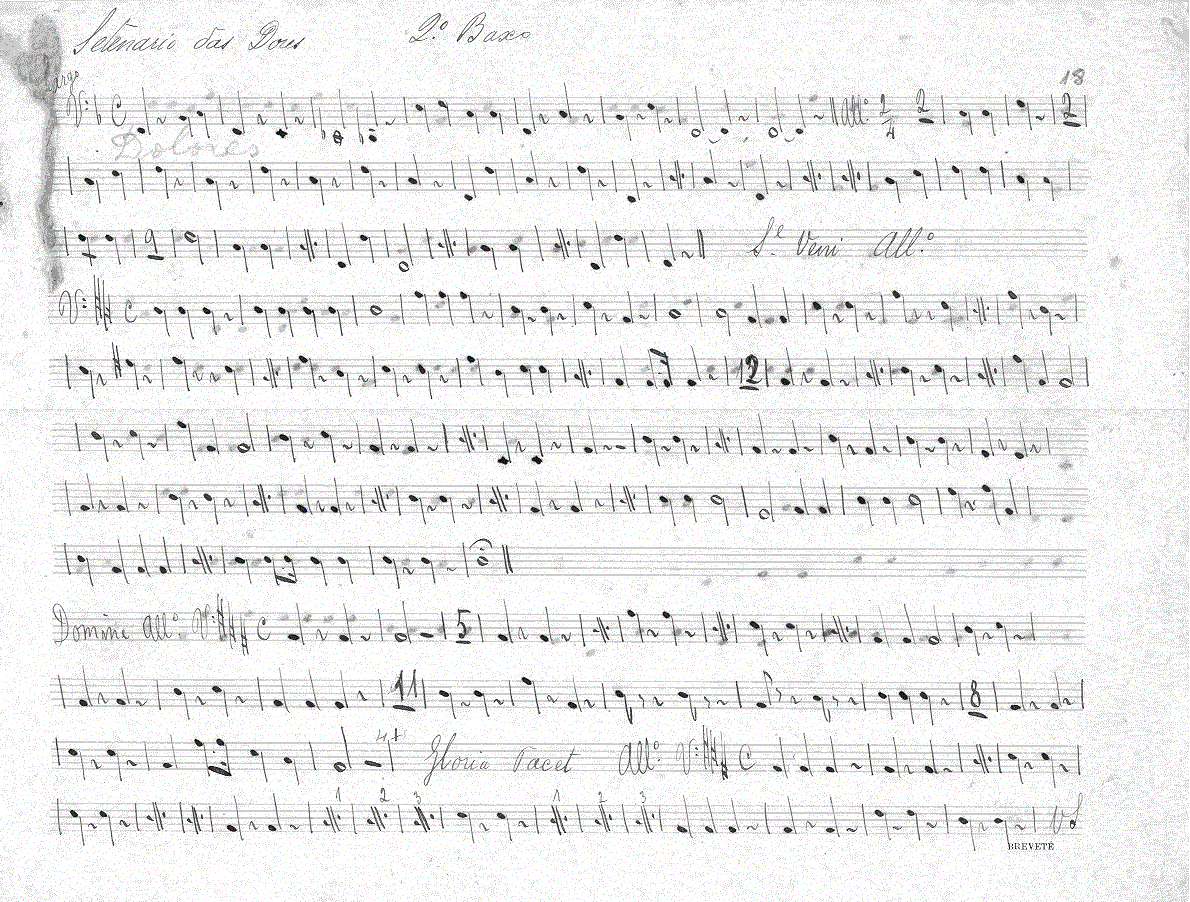 Setenario das Dores 2.º Baxo
Largo
18
C All.º 2/4 2 2
Dolores
2
Se Veni All.º
C
12
Domine All.º C 5
11 8
Gloria Tacet All.º C
1 2 3 1 2 3
BREVETÉ